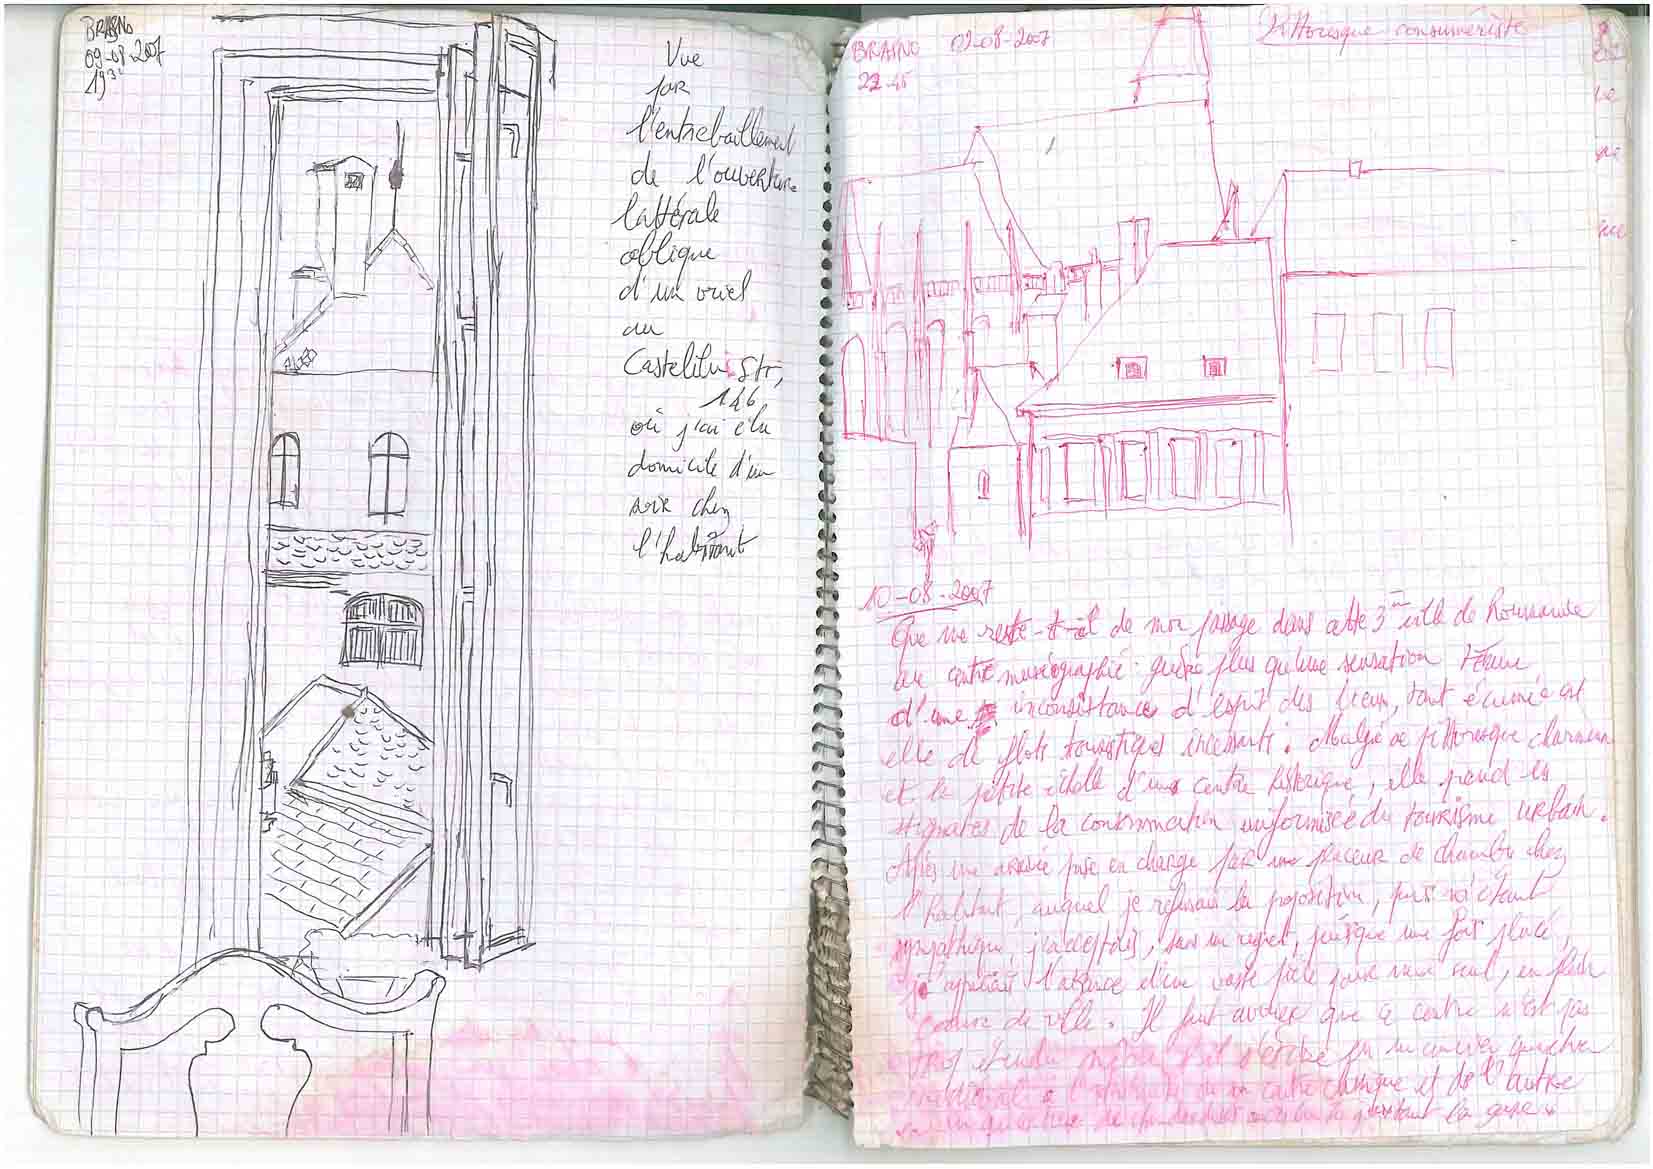 BRASNO
09-08-2007
19³⁰
Vue
par
l'entrebaillement
de l'ouverture
lattérale
oblique
d'un oriel
au
Castelilui Str,
146
où j'ai élu
domicile d'un
soir chez
l'habitant
BRASNO 09-08-2007
22.45
Pittoresque consumériste
10-08-2007
Que me reste-t-il de mon passage dans cette 3ème ville de Roumanie
au centre muséographié: guère plus qu'une sensation ténue
d'une inconsistance d'esprit des lieux, tant écumée est
elle de flots touristiques incessants. Malgré ce pittoresque charmant
et la petite échelle d'un centre historique, elle prend les
stigmates de la consommation uniformisée du tourisme urbain.
Après une arrivée prise en charge par un placeur de chambre chez
l'habitant, auquel je refusais la proposition, puis s'étant
sympathique, j'acceptais, sans un regret, puisque une fois placé,
j'appréciais l'aisance d'une vaste pièce pour moi seul, en plein
coeur de ville. Il faut avouer que ce centre n'est pas
trop étendu même s'il
un centre et de l'autre
la gare.